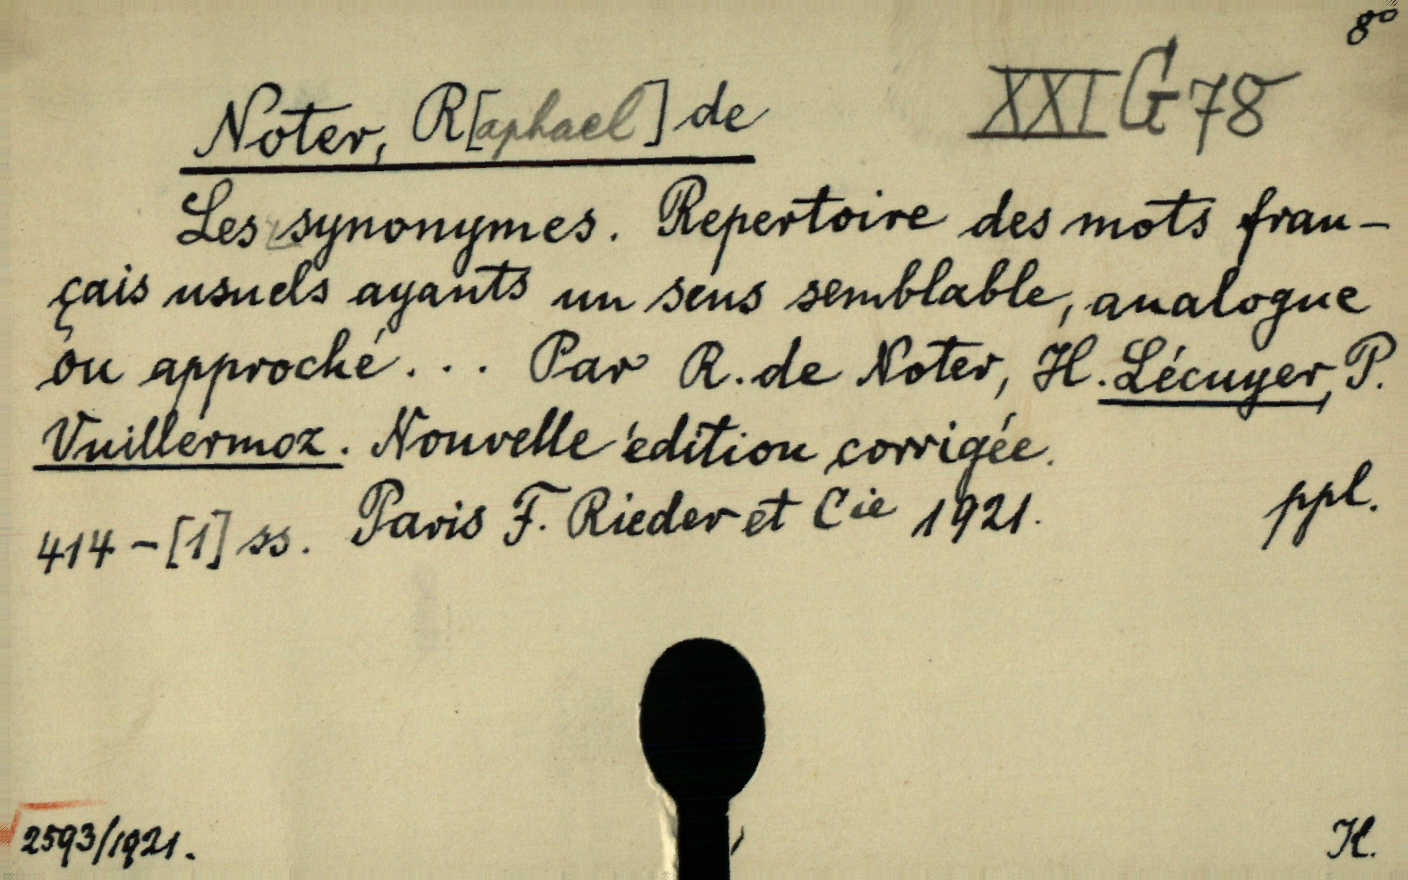 8°
XXI G 78
Noter, R[aphael] de
Les synonymes. Repertoire des mots fran-
çais usuels ayants un sens semblable, analogue
ou approché... Par R. de Noter, H. Lécuyer, P.
Vuillermoz. Nouvelle édition corrigée.
414-[1] ss. Paris F. Rieder et Cie 1921. ppl.
2593/1921.
H.